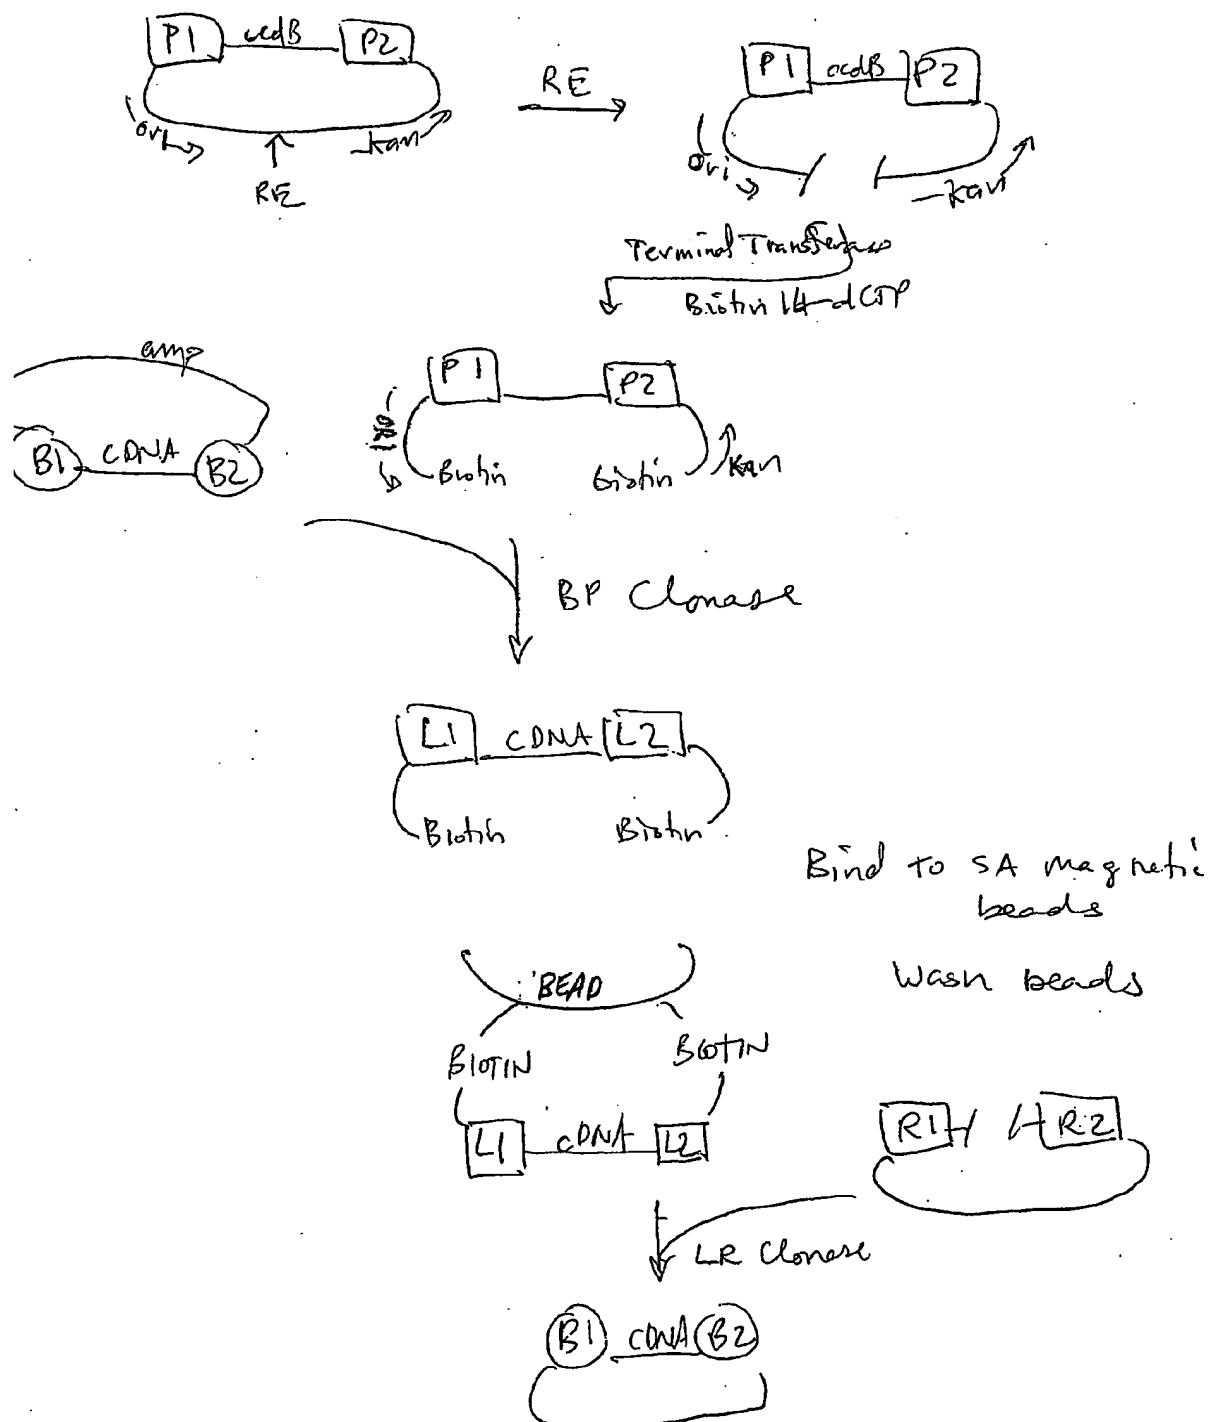 P1 ccdB P2
ori
kan
RE
RE
P1 ccdB P2
Ori
kan
Terminal Transferase
Biotin 14-dCTP
amp
B1 CDNA B2
P1 P2
ORI
Biotin Biotin
kan
BP Clonase
L1 CDNA L2
Biotin Biotin
Bind to SA magnetic
beads
Wash beads
BEAD
BIOTIN BIOTIN
L1 cDNA L2
R1 R2
LR Clonase
B1 CDNA B2